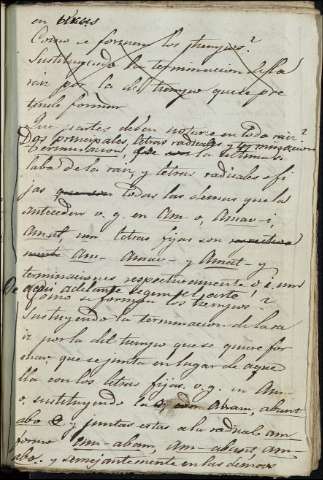 en
Como se forman los tiempos?
Sustituyendo la terminacion de la
raiz por la del tiempo que se pre
tende formar
Que partes deben notarse en toda raiz?
Dos principales, letras radicales y terminacion
Terminacion, la ultima si
laba de la raiz, y letras radicales o fi
jas todas las demas que la
anteceden v. g. en Am-o, Amav-i,
Amat, son letras fijas son
Am- Amav- y Amat- y
terminaciones respectivamente o, i, um
De aqui adelante
Como se forman los tiempos?
Sustituyendo la terminacion de la ra
iz por la del tiempo que se quiere for
mar, que se junta en lugar de aque
lla con las letras fijas. v. g. en Am-
o, sustituyendo la o, abam, abunt
abo y juntas estas a la radical am
forma am-abam, am-abunt, am-
abo: y semejantemente en las demas